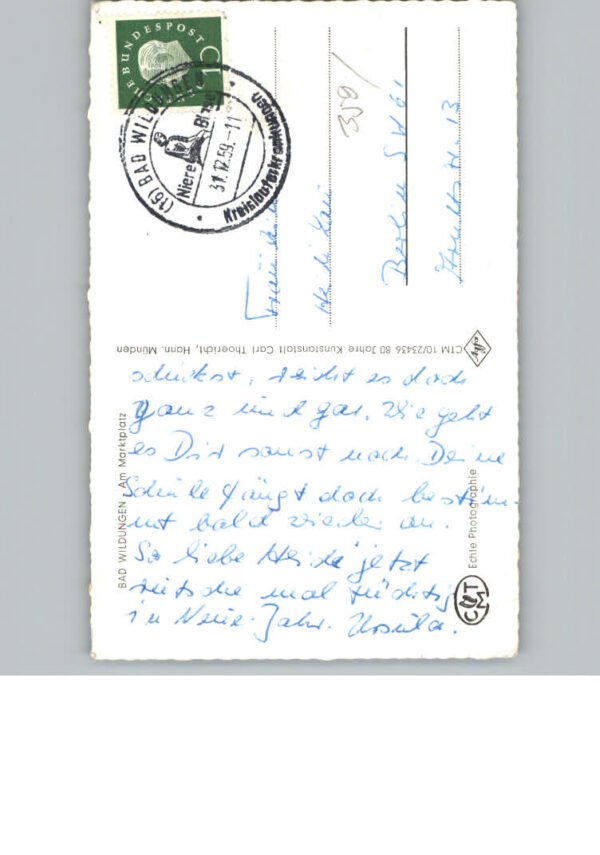 DEUTSCHE BUNDESPOST
(16) BAD WILDUNGEN
Niere Blase
31.12.59.-11
Kreislauferkrankungen
359/
Fräulein
Heidi
Berlin SW 61
13
CTM 10/23436 80 Jahre Kunstanstalt Carl Thoericht, Hann. Münden
schickst, reicht es doch
ganz und gar. Wie geht
es Dir sonst noch. Deine
Schule fängt doch bestim-
mt bald wieder an.
So liebe Heide jetzt
rutsche mal tüchtig
in Neue-Jahr. Ursula.
BAD WILDUNGEN Am Marktplatz
Echte Photographie